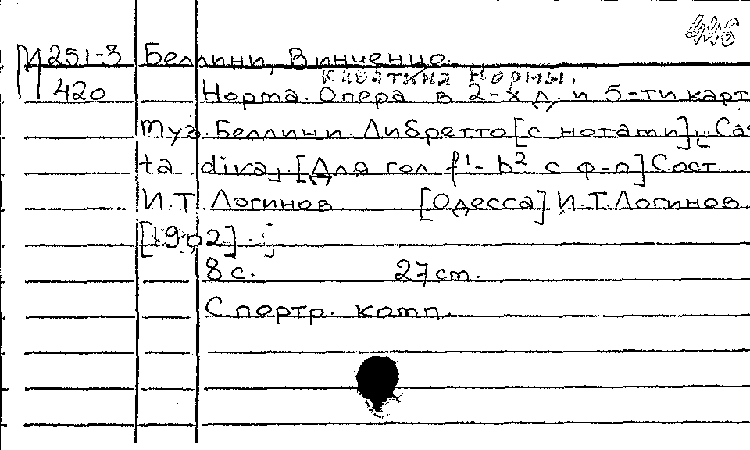 446
М 251-3 Беллини, Винченцо.
Каватина Нормы.
420 Норма. Опера в 2-х д. и 5-ти карт
Муз. Беллини. Либретто [с нотами] „Cas
ta diva„. [Для гол. f¹- h² с ф-п] Сост.
И.Т. Логинов [Одесса] И.Т. Логинов
[1902].
8 с. 27 cm.
С портр. комп.